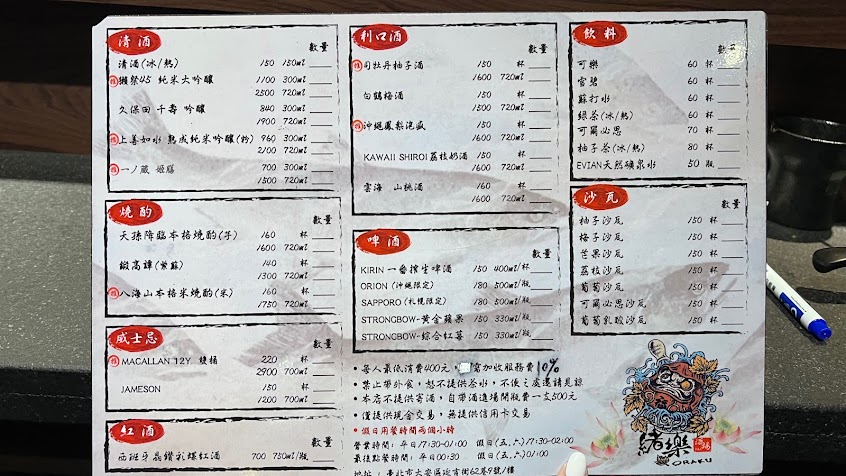 清酒
數量
清酒(冰/熱) 150 150ml
推 獺祭45 純米大吟釀 1100 300ml
2500 720ml
久保田 千壽 吟釀 840 300ml
1900 720ml
推 上善如水 熟成純米吟釀(粉) 960 300ml
2100 720ml
推 一ノ蔵 姬膳 700 300ml
1500 720ml
燒酌
數量
天孫降臨本格燒酌(芋) 160 杯
1600 720ml
鍛高譚(紫蘇) 140 杯
1300 720ml
推 八海山本格米燒酌(米) 160 杯
1750 720ml
威士忌
數量
推 MACALLAN 12Y 雙桶 220 杯
2900 700ml
JAMESON 150 杯
1200 700ml
紅酒
數量
西班牙晶鑽衫蝶紅酒 700 750ml/瓶
利口酒
數量
推 司牡丹柚子酒 150 杯
1600 720ml
白鶴梅酒 150 杯
1500 720ml
推 沖繩鳳梨泡盛 150 杯
1600 720ml
KAWAII SHIROI荔枝奶酒 150 杯
1600 720ml
雲海 山桃酒 160 杯
1600 720ml
啤酒
數量
KIRIN 一番搾生啤酒 150 400ml/杯
ORION (沖繩限定) 180 500ml/瓶
SAPPORO (札幌限定) 180 500ml/瓶
STRONGBOW-黃金蘋果 150 330ml/瓶
STRONGBOW-綜合紅莓 150 330ml/瓶
•每人最低消費400元, 需加收服務費10%
•禁止帶外食,恕不提供茶水,不便之處還請見諒
•本店不提供寄酒,自帶酒進場開瓶費一支500元
•僅提供現金交易,無提供信用卡交易
•假日用餐時間兩個小時
營業時間: 平日17:30-01:00 假日(五,六)17:30-02:00
最後點餐時間: 平日00:30 假日(五,六)01:00
地址:臺北市大安區延吉街62巷9號1樓
飲料
數量
可樂 60 杯
雪碧 60 杯
蘇打水 60 杯
綠茶(冰/熱) 60 杯
可爾必思 70 杯
柚子茶(冰/熱) 80 杯
EVIAN天然礦泉水 50 瓶
沙瓦
數量
柚子沙瓦 150 杯
梅子沙瓦 150 杯
芒果沙瓦 150 杯
荔枝沙瓦 150 杯
葡萄沙瓦 150 杯
可爾必思沙瓦 150 杯
葡萄乳酸沙瓦 150 杯
緒樂
ORAKU